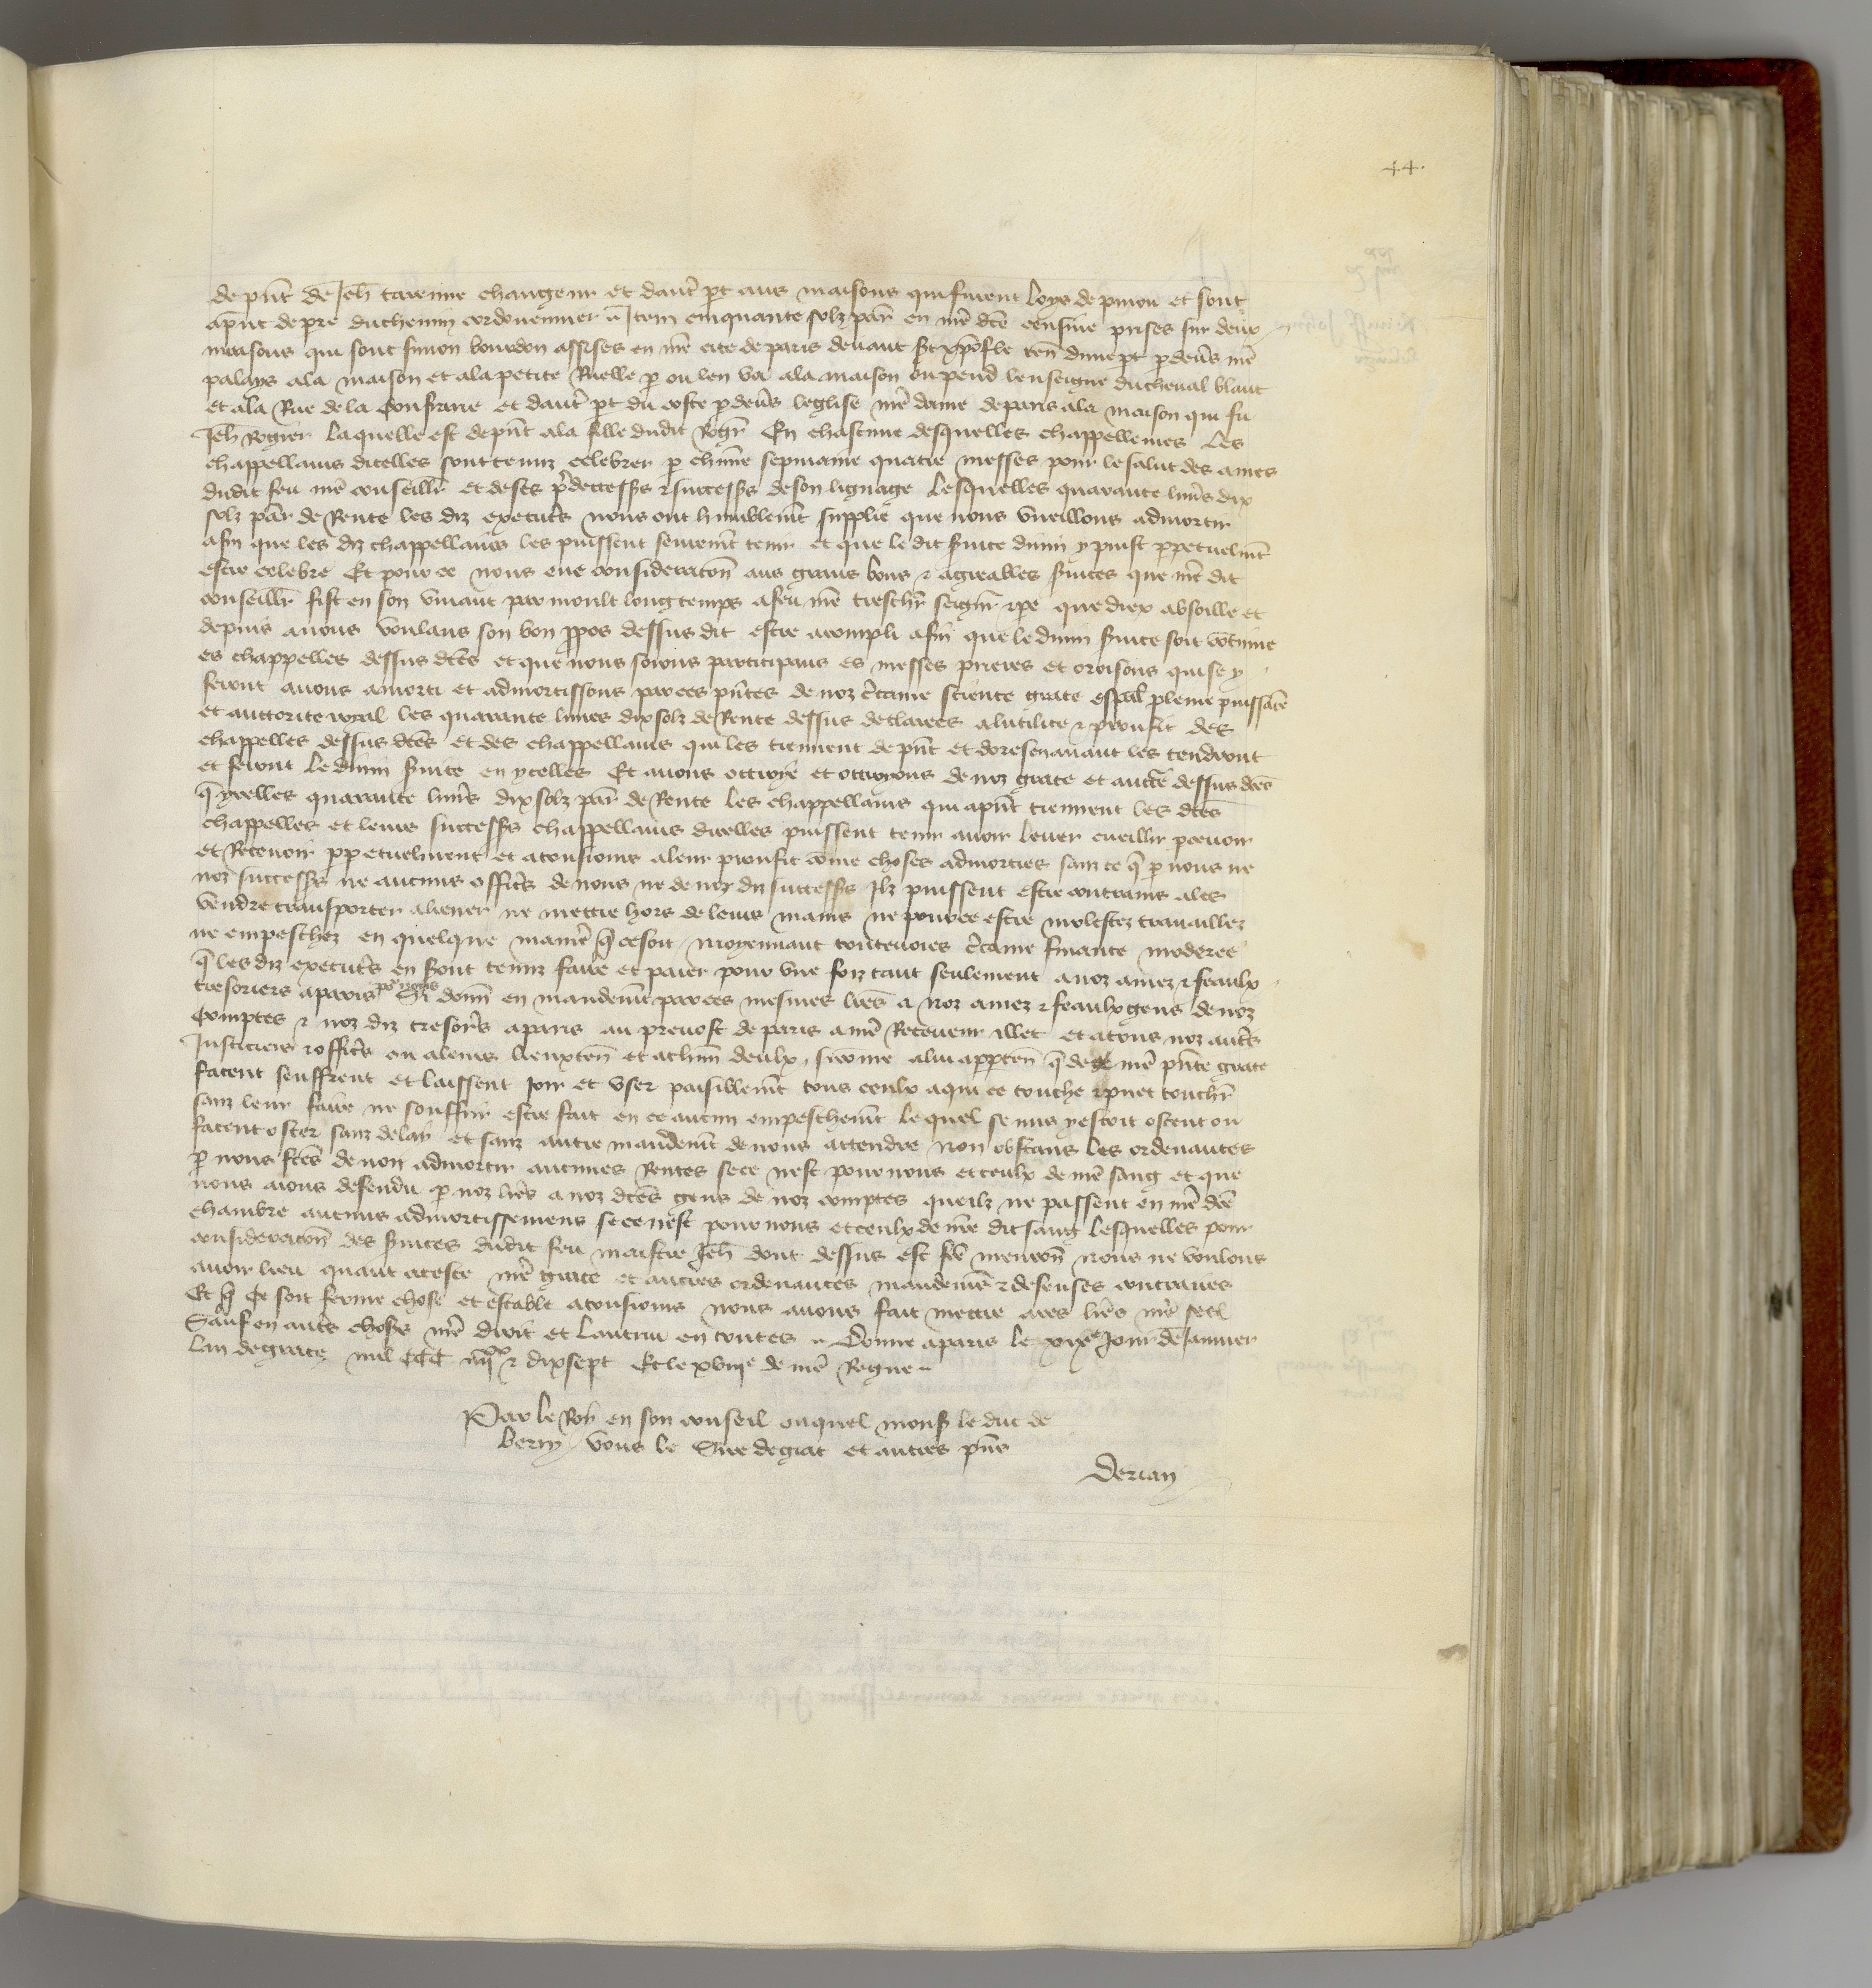 44.
de pñt de Jeh tarenne changeur et dautˀ pt aus maisons qui furent Loys de pmou et sont
apñt de pre duchemin cordouennier. Item cinquante solz par en nrẽ dce censive prises sur deux
maisons qui sont simon bourdon assises en nrẽ cite de paris devant st xpofle ten dune pt p devs nrẽ
palays ala maison et ala petite Ruelle p ou len va ala maison ou pend lenseigne du cheval blanc
et ala Rue de la Confrarie et dautˀ pt du coste p devs leglise nrẽ dame de paris ala maison qui fu
Jeh Rogier laquelle est de pñt ala fille dudit Rogr En chascune desquelles chappellenies les
chappellains dicelles sont tenuz celebrer p chune sepmaine quatre messes pour le salut des ames
dudit feu nrẽ conseillr et de ses predecesss et successs de son lignage lesquelles quarante livrs dix
solz par de Rente les diz executrs nous ont humblemt supplie que nous vueillons admortir
afin que les diz chappellains les puissent seurement tenir et que ledit svice divin y puist ppetuelmt
estre celebre Et pour ce nous eue consideracon aus grans bons et agreables svices que nrẽ dit
conseillr fist en son vivant par moult long temps a feu nrẽ treschr seignr et pe que diex absoille et
depuis a nous voulans son bon ppos dessus dit estre acompli afin que le divin svice soit contine
es chappelles dessus dces et que nous soions participans es messes prieres et oroisons qui se y
feront avons amorti et admortissons par ces pñtes de noz ctaine science grace espal pleine puissance
et auctorite royal les quarante livres dix solz de Rente dessus declarees a lutilite et proufit des
chappelles dessus dces et des chappellains qui les tiennent de pñt et doresenavant les tendront
et feront le divin svice en ycelles Et avons ottroye et ottroyons de noz grace et aucte dessus dces
q ycelles quarante livrs dix solz par de Rente les chappellains qui apñt tiennent les dces
chappelles et leurs successs chappellains dicelles puissent tenir avoir lever cueillir pcevoir
et Recevoir ppetuelment et atousjours a leur proufit come choses admorties sanz ce q p nous ne
noz successs ne aucuns officrs de nous ne de noz diz successs Ilz puissent estre contrains ales
vendre transporter aliener ne mettre hors de leurs mains ne pour ce estre molestez travaillez
ne empeschez en quelque manie q ce soit moyennant toutevoies ctaine finance moderee
q les diz executrs en sont tenuz faire et paier pour une foiz tant seulement a noz amez et feaulx
tresoriers a paris por nous Si donn en mandemt par ces mesmes lres a noz amez et feaulx gens de noz
Comptes et noz diz tresorrs a paris au prevost de paris a nrẽ Receveur illec et a tous noz autrs
Justiciers et officrs ou a leurs lieuxten et a chun deulx sicome a lui apparten q de nrẽ pñte grace
facent seuffrent et laissent Joir et user paisiblemt tous ceulx a qui ce touche et puet touchr
sanz leur faire ne souffrir estre fait en ce aucun empeschemt lequel se mis y estoit ostent ou
facent oster sanz delay et sanz autre mandemt de nous attendre non obstans les ordenances
p nous fces de non admortir aucunes Rentes se ce nest pour nous et ceulx de nrẽ sang et que
nous aions defendu p noz lres a noz dces gens de noz comptes queilz ne passent en nrẽ dce
chambre aucuns admortissemens se ce nest pour nous et ceulx de nrẽ dit sang lesquelles pour
consideracon des svices dudit feu maistre Jeh dont dessus est fce mencon nous ne voulons
avoir lieu quant a ceste nrẽ grace et autres ordenances mandemens et defenses contraires
Et q ce soit ferme chose et estable a tousjours nous avons fait mettre a ces lres nrẽ seel
Sauf en autrs choses nrẽ droit et lautrui en toutes. Donne a paris le xixe Jour de Janvier
lan de grace mil CCC iiijxx et dixsept Et le xviije de nrẽ Regne
Par le Roy en son conseil ouquel mons le duc de
berry vous le Sire de giac et autres pñs
Derian